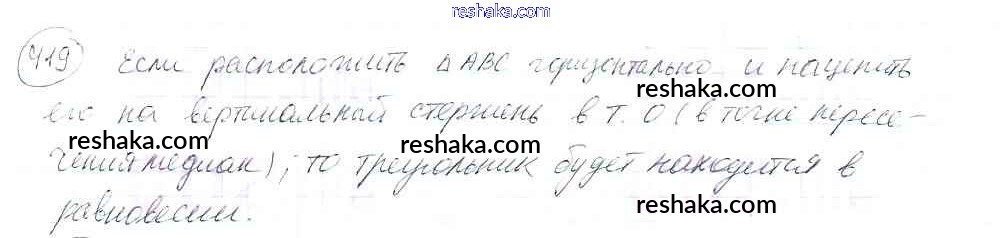 reshaka.com
419 Если расположить △ABC горизонтально и нацепить
reshaka.com reshaka.com
его на вертикальный стержень в т. О (в точке пересе-
reshaka.com reshaka.com
чения медиан), то треугольник будет находится в
равновесии.
reshaka.com